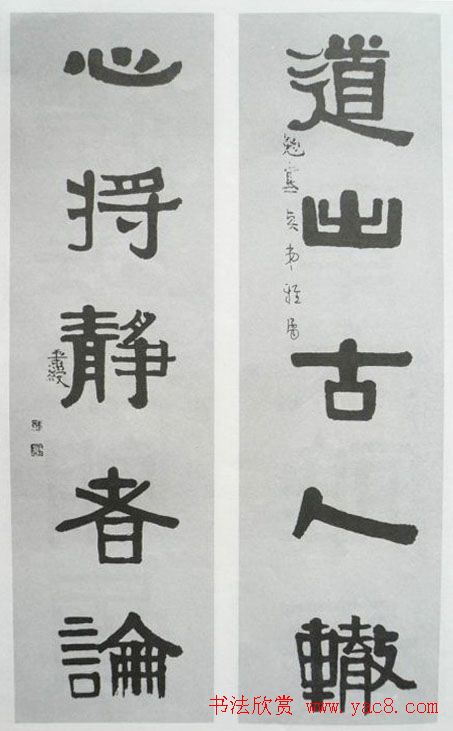 道出古人轍
弟雅屬
心將靜者論
秉綬
书法欣赏 www.yac8.com